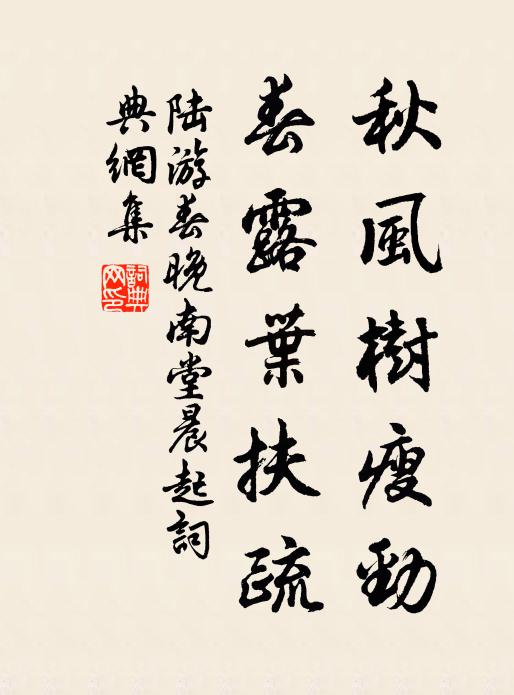 秋風樹瘦勁
春露葉扶疏
陆游春晚南堂晨起詞
典網集
詞典
网印